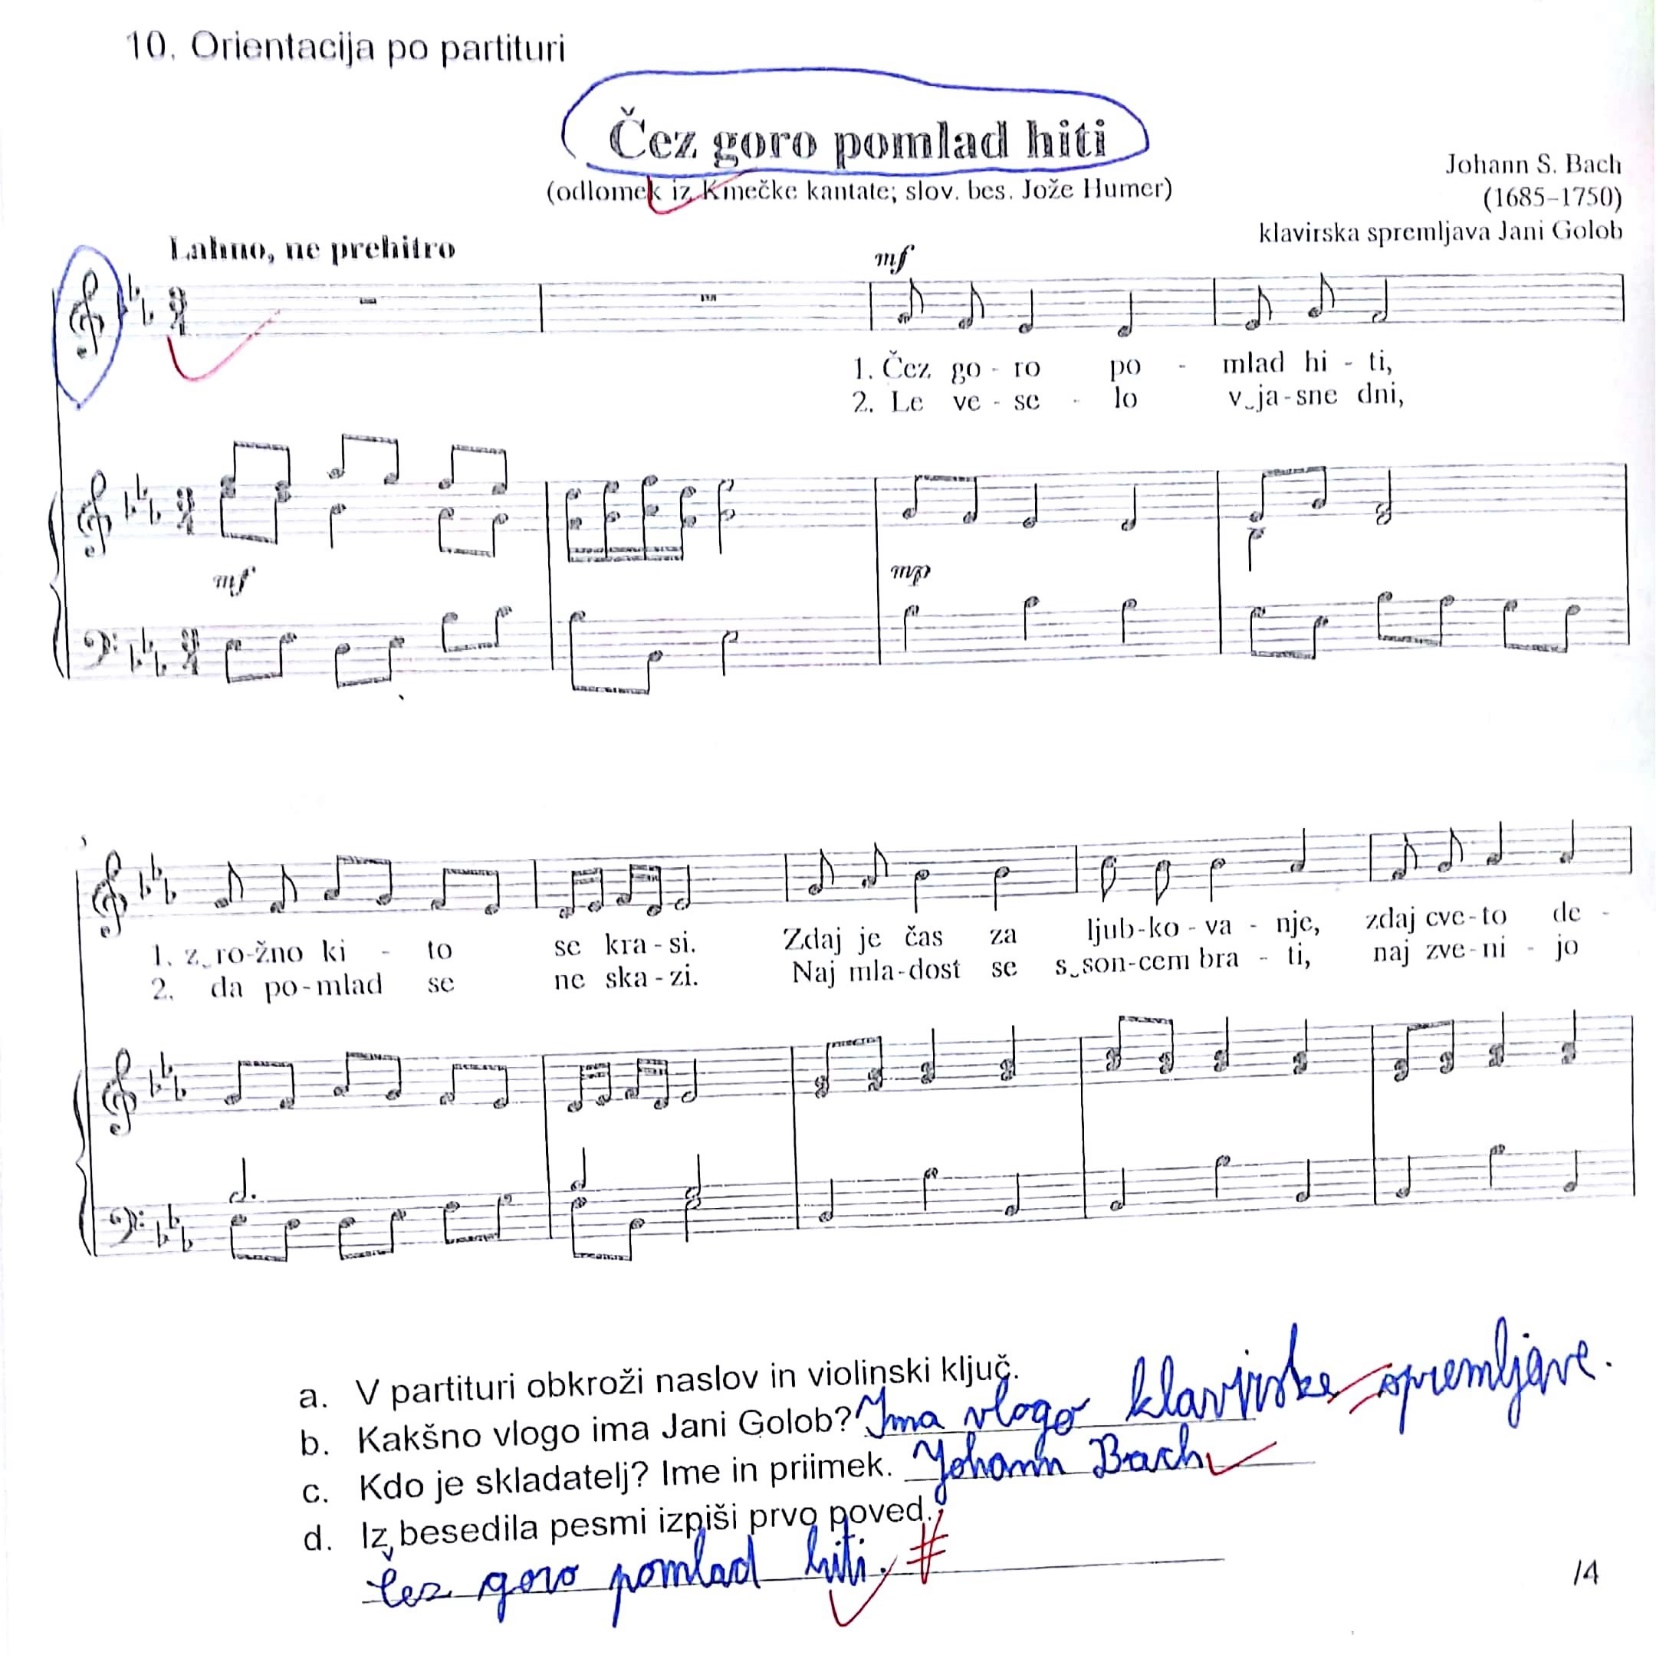 10. Orientacija po partituri
Čez goro pomlad hiti
(odlomek iz Kmečke kantate; slov. bes. Jože Humer)
Johann S. Bach
(1685–1750)
klavirska spremljava Jani Golob
Lahno, ne prehitro
mf
1. Čez go - ro po - mlad hi - ti,
2. Le ve - se - lo v‿ja - sne dni,
mf
mp
1. z‿ro-žno ki - to se kra - si. Zdaj je čas za ljub-ko - va - nje, zdaj cve-to de -
2. da po-mlad se ne ska - zi. Naj mla-dost se s‿son-cem bra - ti, naj zve-ni - jo
a. V partituri obkroži naslov in violinski ključ.
b. Kakšno vlogo ima Jani Golob? Ima vlogo klavirske spremljave.
c. Kdo je skladatelj? Ime in priimek. Johann Bach
d. Iz besedila pesmi izpiši prvo poved.
Čez goro pomlad hiti.
/4